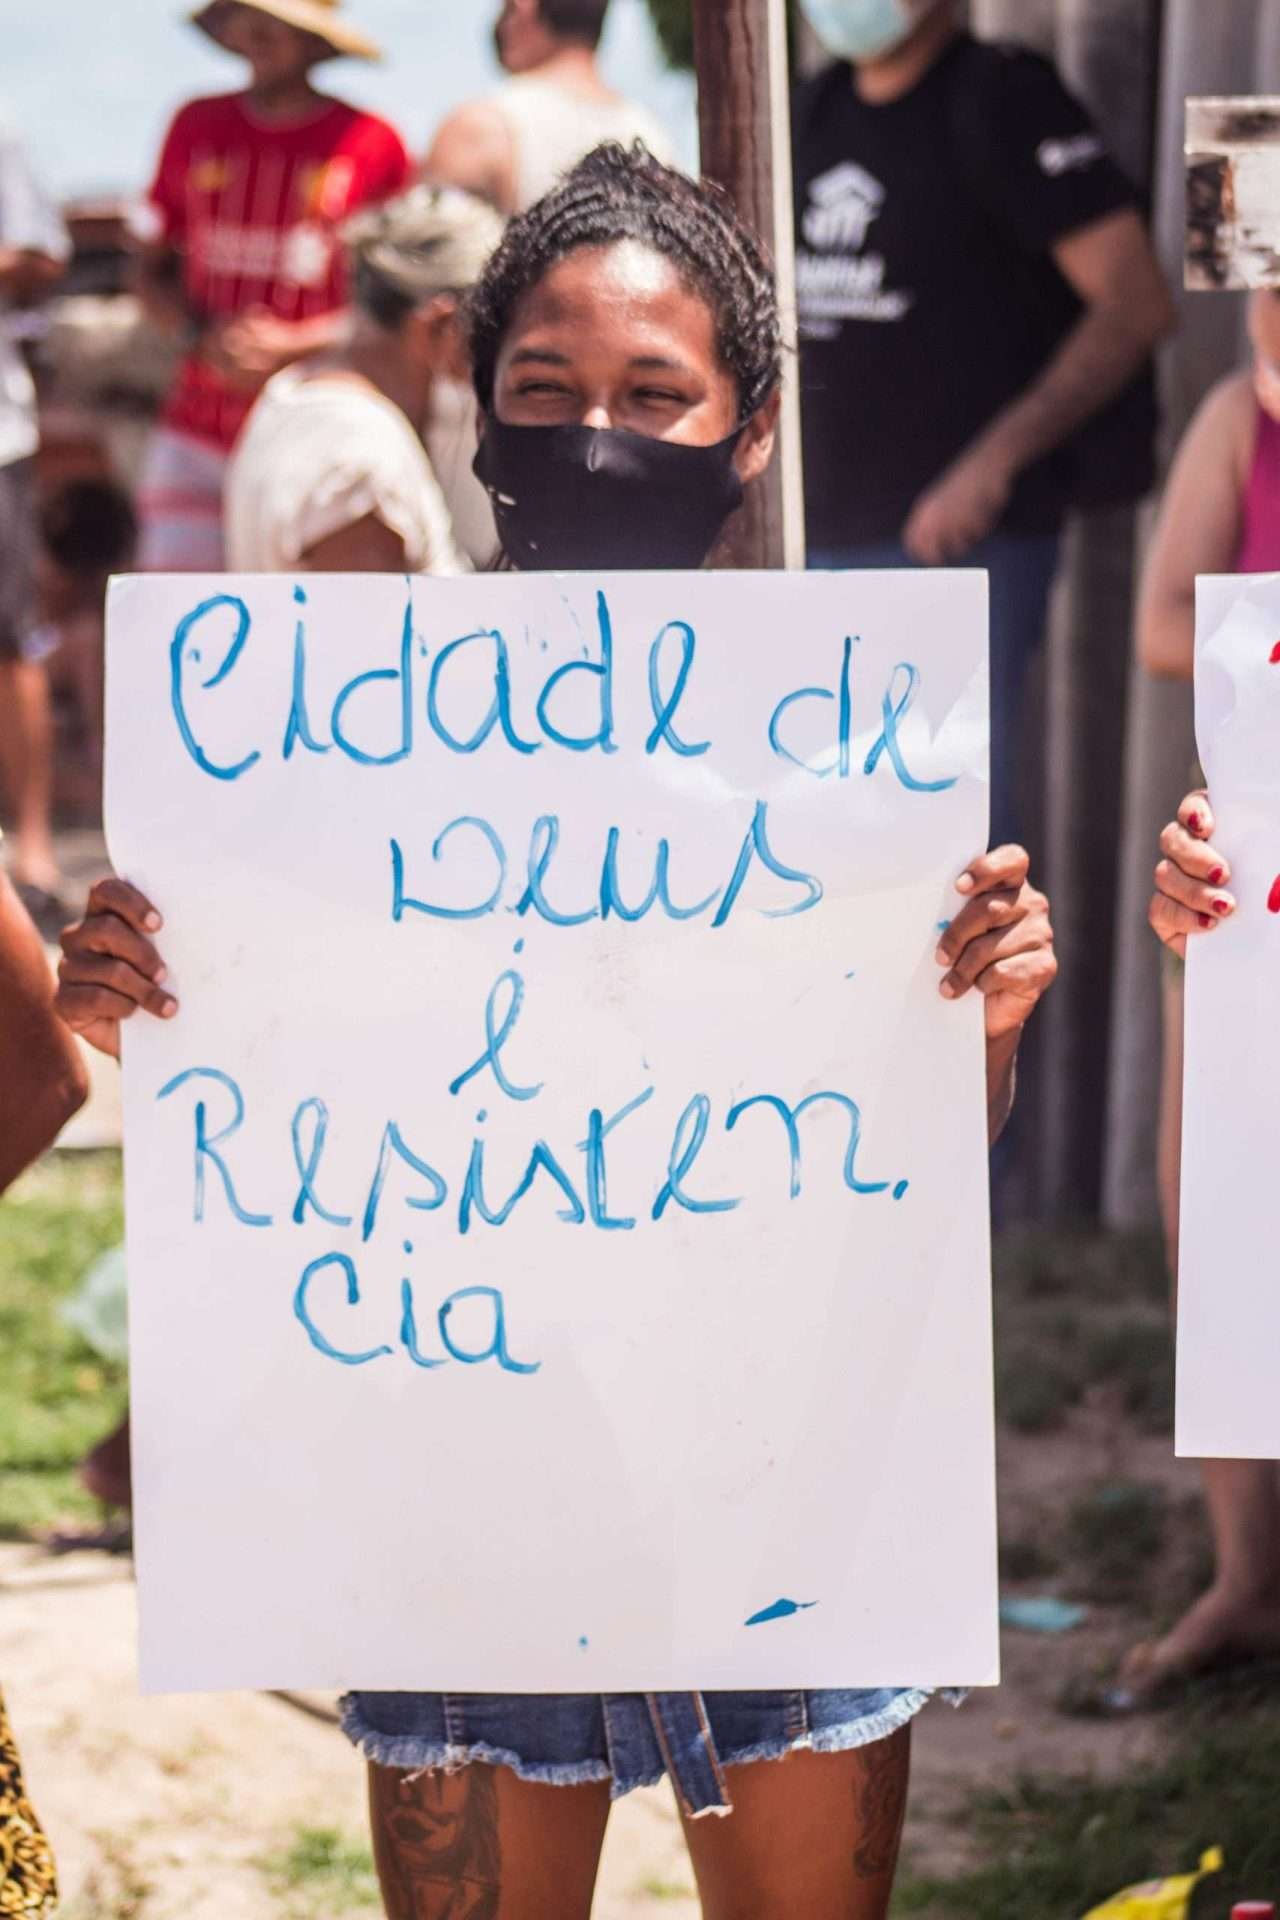 Cidade de
Deus
é
Resisten.
Cia